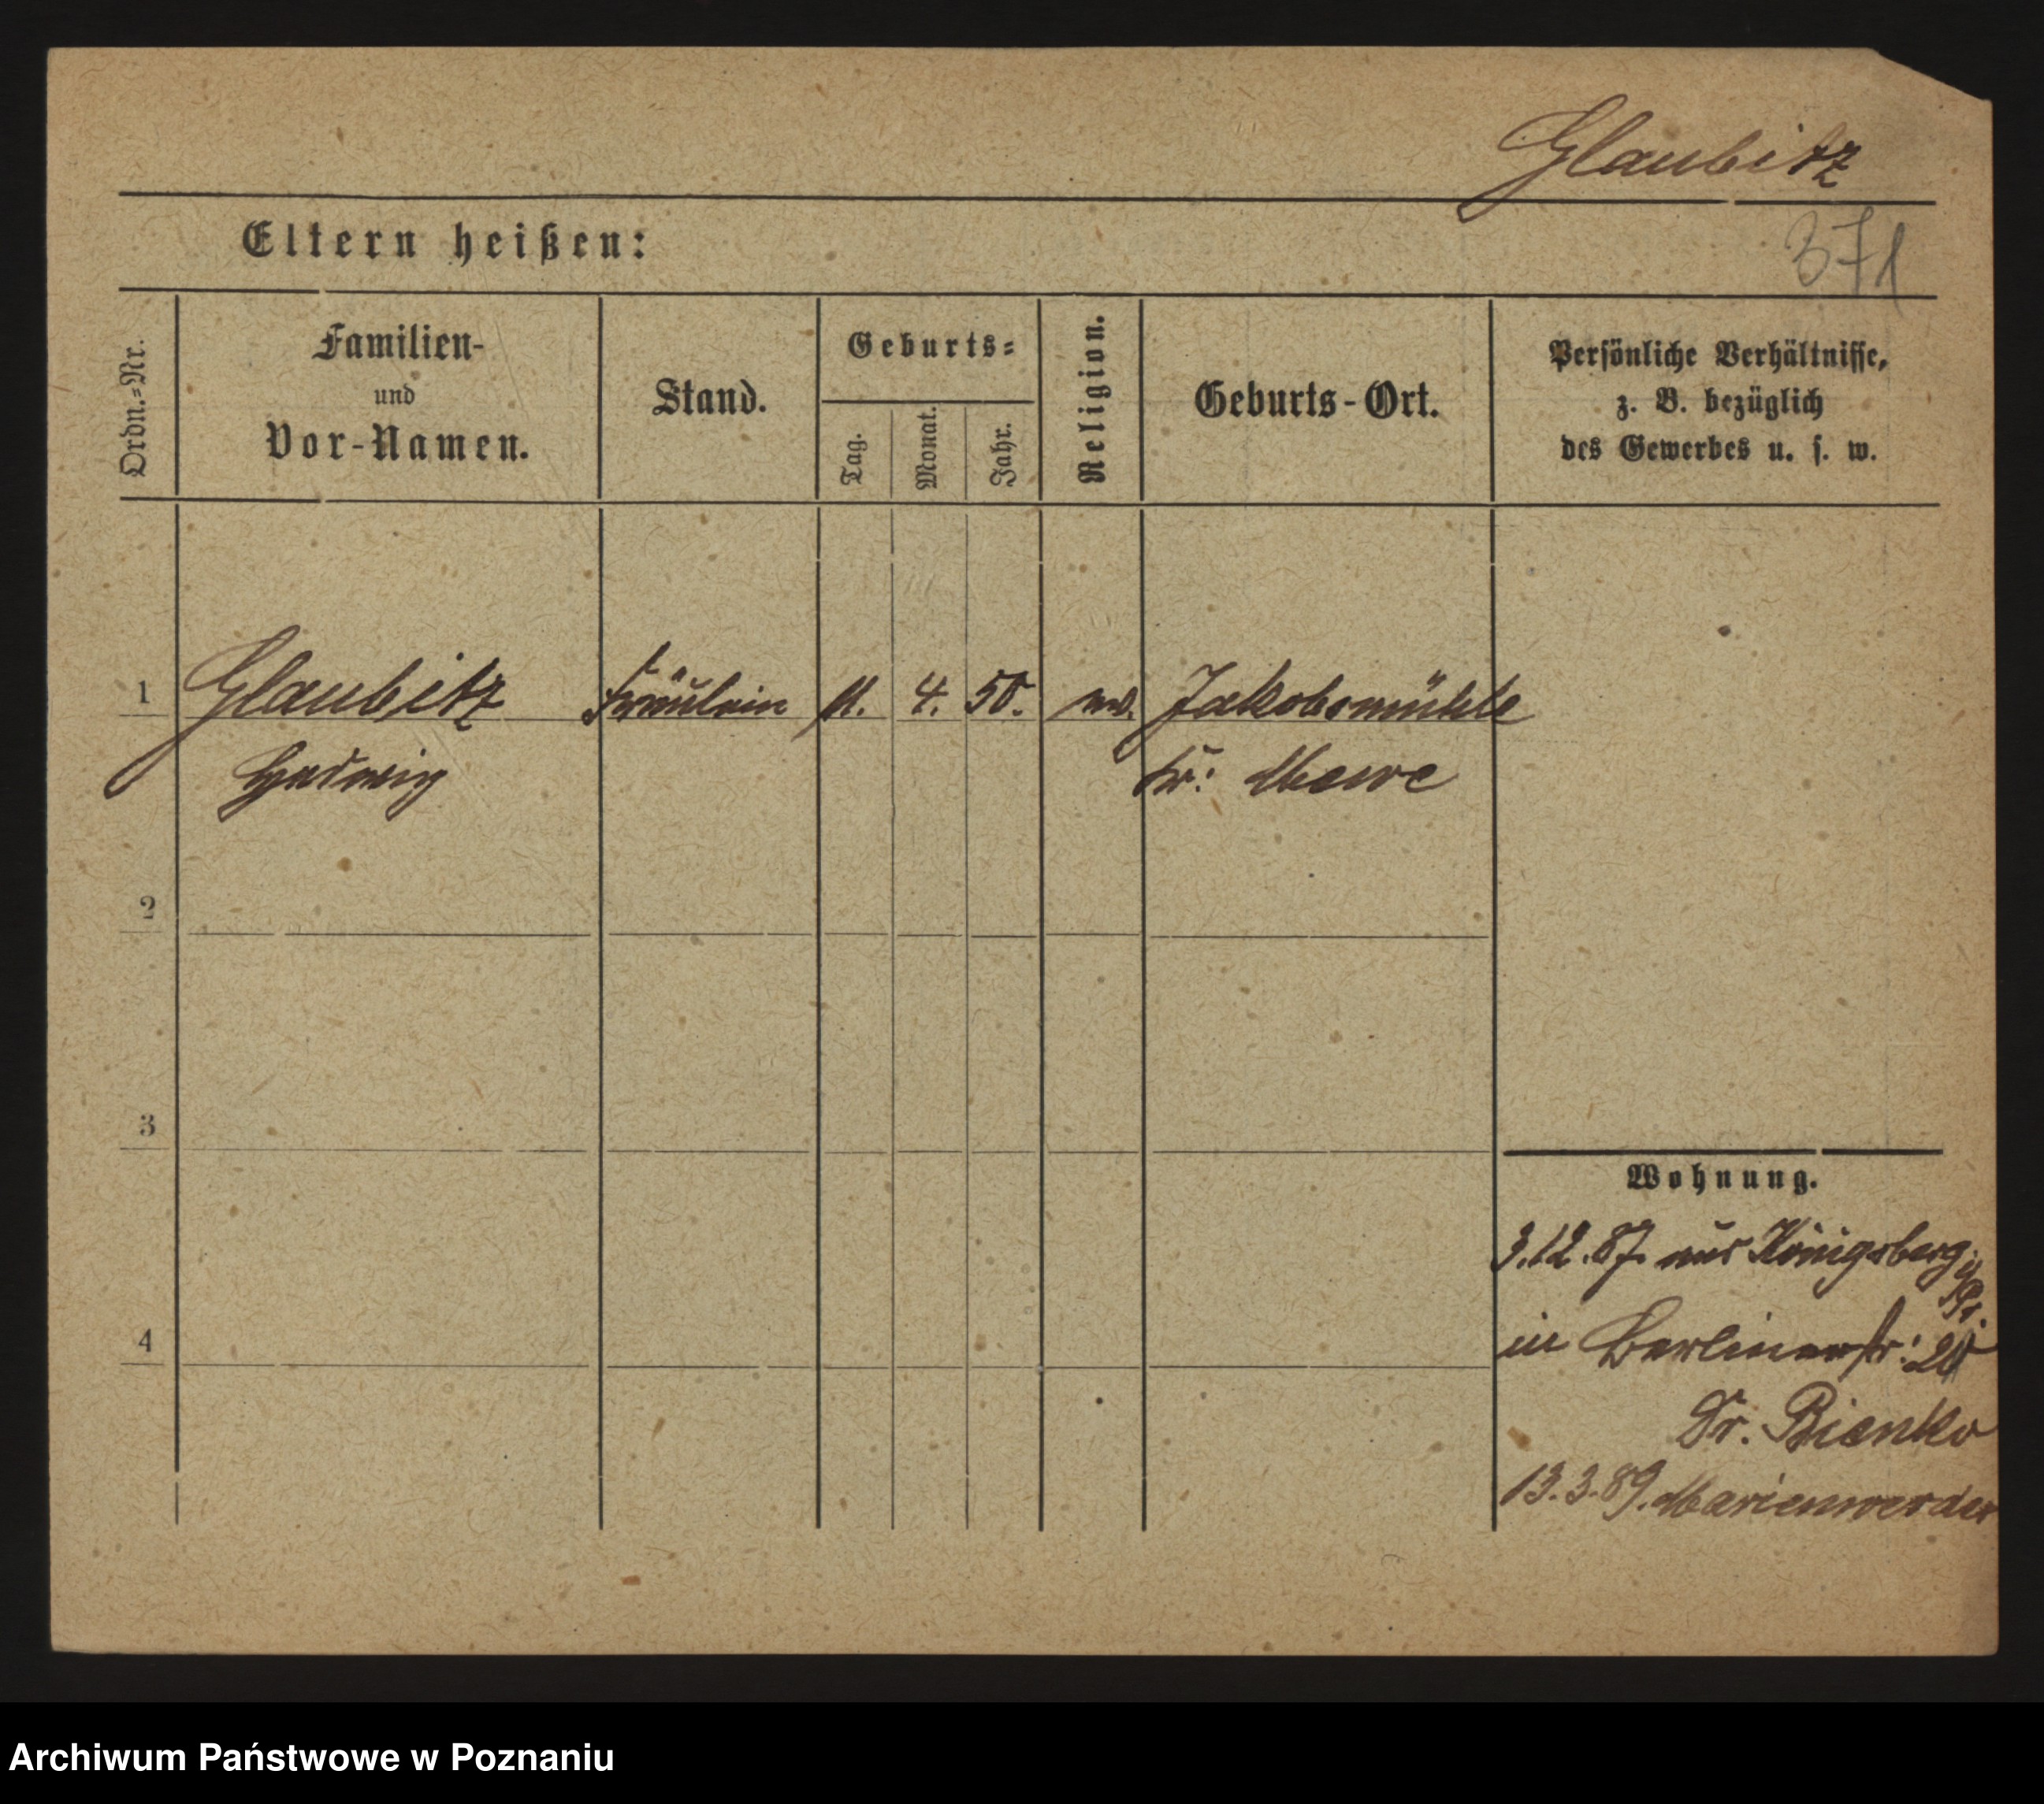 Glaubitz
371
Eltern heißen:
Ordn.=Nr.
Familien-
und
Vor-Namen.
Stand.
Geburts=
Tag.
Monat.
Jahr.
Religion.
Geburts-Ort.
Persönliche Verhältnisse,
z. B. bezüglich
des Gewerbes u. s. w.
1 Glaubitz Fräulein 11. 4. 50. ev. Jakobsmühle
Hedwig Kr: Mewe
2
3
4
Wohnung.
3.12.87. aus Königsberg
in Berlinerstr:
Dr. Bienko
13.3.89. Marienwerder
Archiwum Państwowe w Poznaniu